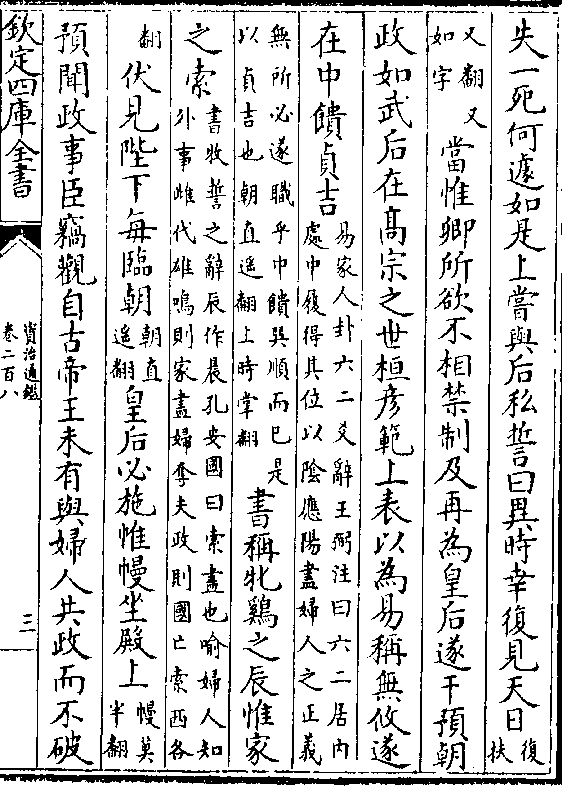 失一死何遽如是上嘗與后私誓曰異時幸復見天日復扶
又翻又如字當惟卿所欲不相禁制及再為皇后遂干預朝
政如武后在髙宗之世桓彦範上表以為易稱無攸遂
在中饋貞吉易家人卦六二爻辭王弼注曰六二居内處中履得其位以陰應陽盡婦人之正義
無所必遂職乎中饋巽順而已是以貞吉也朝直遥翻上時掌翻書稱牝鷄之辰惟家
之索書牧誓之辭辰作晨孔安國曰索盡也喻婦人知外事雌代雄鳴則家盡婦奪夫政則國亡索西各
翻伏見陛下每臨朝朝直遥翻皇后必施帷幔坐殿上幔莫半翻
預聞政事臣竊觀自古帝王未有與婦人共政而不破
欽定四庫全書
資治通鑑
卷二百八
三